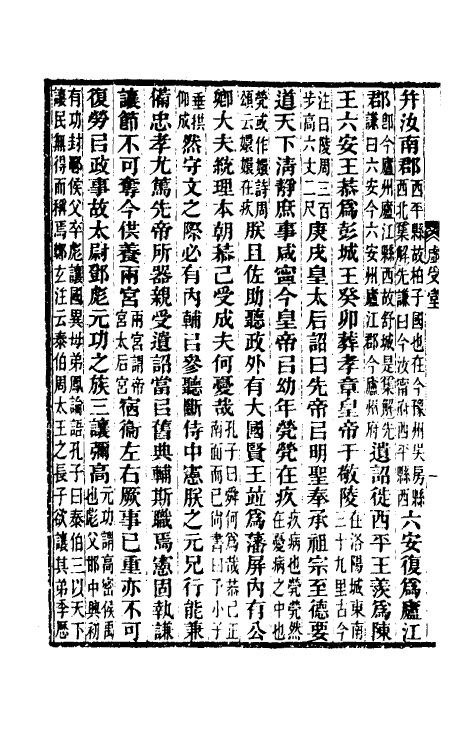 幷汝南郡西平縣故柏子國也在今豫州吳房縣西北集解先謙曰今汝甯府西平縣西六安復爲廬江
郡郎今廬州廬江縣西故舒城是集解先謙曰六安今六安州廬江郡今廬州府遺詔徙西平王羨爲陳
王六安王恭爲彭城王癸卯葬孝章皇帝于敬陵在洛陽城東南三十九里古今
注曰陵周三百步高六丈二尺庚戌皇太后詔曰先帝㠯明聖奉承祖宗至德要
道天下淸靜庶事咸寧今皇帝㠯幼年煢煢在疚疚病也煢煢然在憂病之中也
煢或作嬛詩周頌云嬛嬛在疚朕且佐助聽政外有大國賢王竝爲蕃屏內有公
卿大夫統理本朝恭己受成夫何憂哉孔子曰舜何爲哉恭己正南面而已尚書曰予小子
垂拱仰成然守文之際必有內輔㠯參聽斷侍中憲朕之元兄行能兼
備忠孝尤篤先帝所器親受遺詔當㠯舊典輔斯職焉憲固執謙
讓節不可奪今供養兩宮兩宮謂帝宮太后宮宿衞左右厥事已重亦不可
復勞㠯政事故太尉鄧彪元功之族三讓彌高元功謂高密侯禹也彪父邯中興初
有功封鄳侯父卒彪讓國異母弟鳳論語孔子曰泰伯三以天下讓民無得而稱焉鄭玄注云泰伯周太王之長子欲讓其弟季歷
虛受堂
一